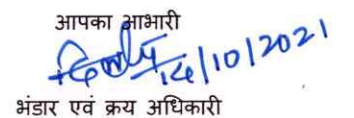 आपका आभारी
14/10/2021
भंडार एवं क्रय अधिकारी